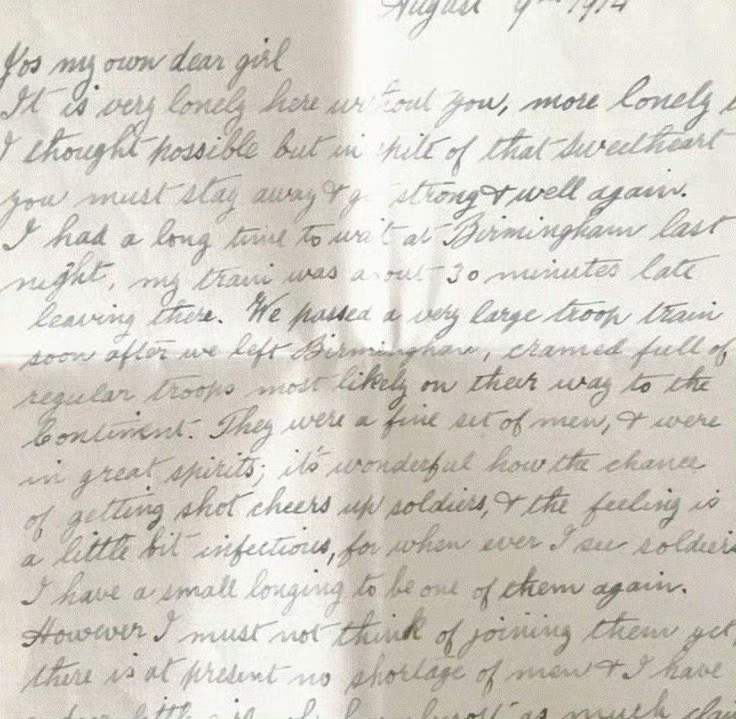 August 9th 1914
my own dear girl
It is very lonely here without you, more lonely
I thought possible but in spite of that sweetheart
you must stay away & strong & well again.
I had a long time to wait at Birmingham last
night, my train was about 30 minutes late
leaving there. We passed a very large troop train
soon after we left Birmingham, cramed full of
regular troops most likely on their way to the
Continent. They were a fine set of men, & were
in great spirits; it's wonderful how the chance
of getting shot cheers up soldiers, & the feeling is
a little bit infectious, for when ever I see soldiers
I have a small longing to be one of them again.
However I must not think of joining them yet,
there is at present no shortage of men & I have
as much